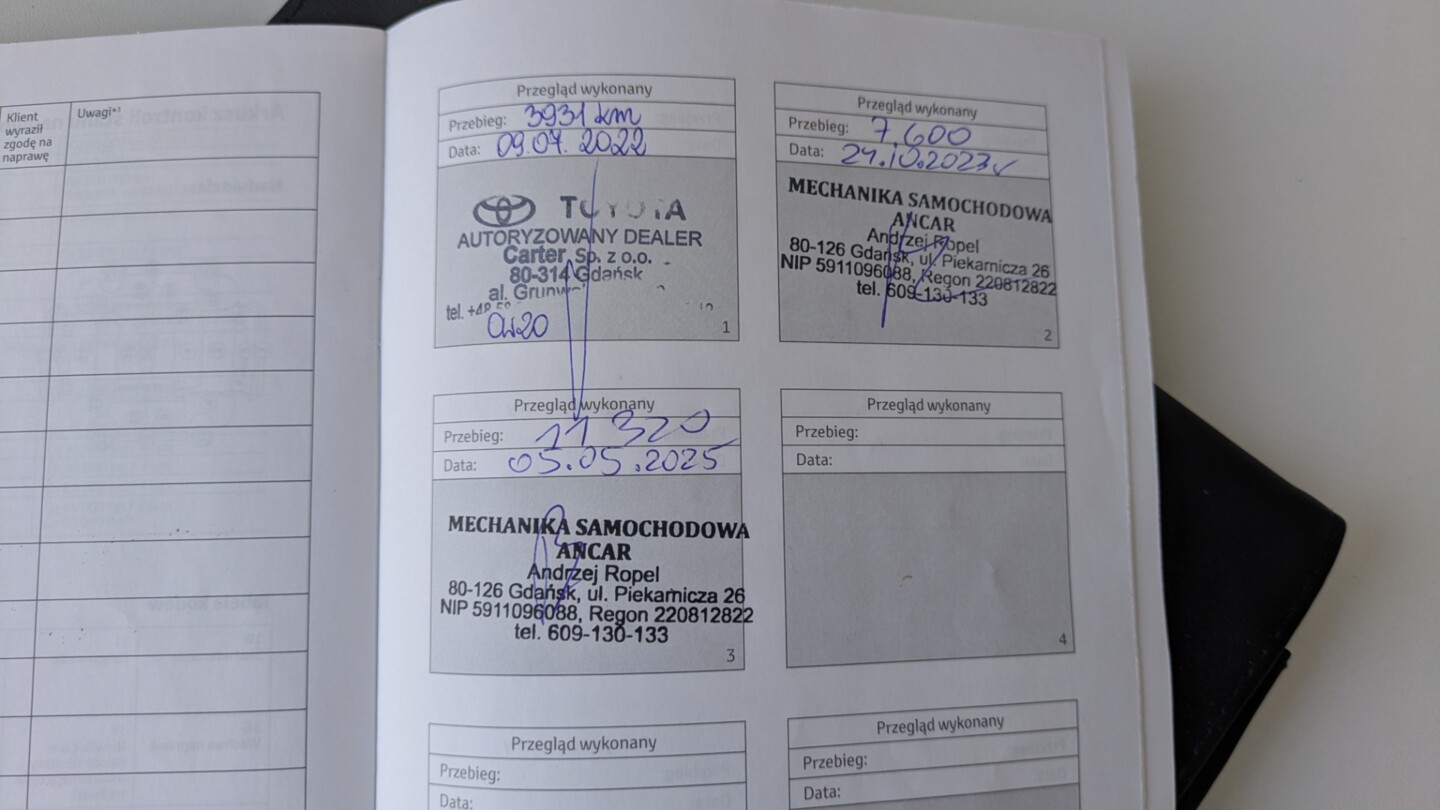 Klient
wyraził
zgodę na
naprawę
Uwagi*⁾
Przegląd wykonany
Przebieg: 3931 km
Data: 09.07.2022
TOYOTA
AUTORYZOWANY DEALER
Carter Sp. z o.o.
80-314 Gdańsk
al. Grunw
tel. +48 58
1
Przegląd wykonany
Przebieg: 7.600
Data: 24.10.2023
MECHANIKA SAMOCHODOWA
ANCAR
Andrzej Ropel
80-126 Gdańsk, ul. Piekarnicza 26
NIP 5911096088, Regon 220812822
tel. 609-130-133
2
Przegląd wykonany
Przebieg: 11 320
Data: 05.05.2025
MECHANIKA SAMOCHODOWA
ANCAR
Andrzej Ropel
80-126 Gdańsk, ul. Piekarnicza 26
NIP 5911096088, Regon 220812822
tel. 609-130-133
3
Przegląd wykonany
Przebieg:
Data:
4
Przegląd wykonany
Przebieg:
Data:
Przegląd wykonany
Przebieg:
Data: